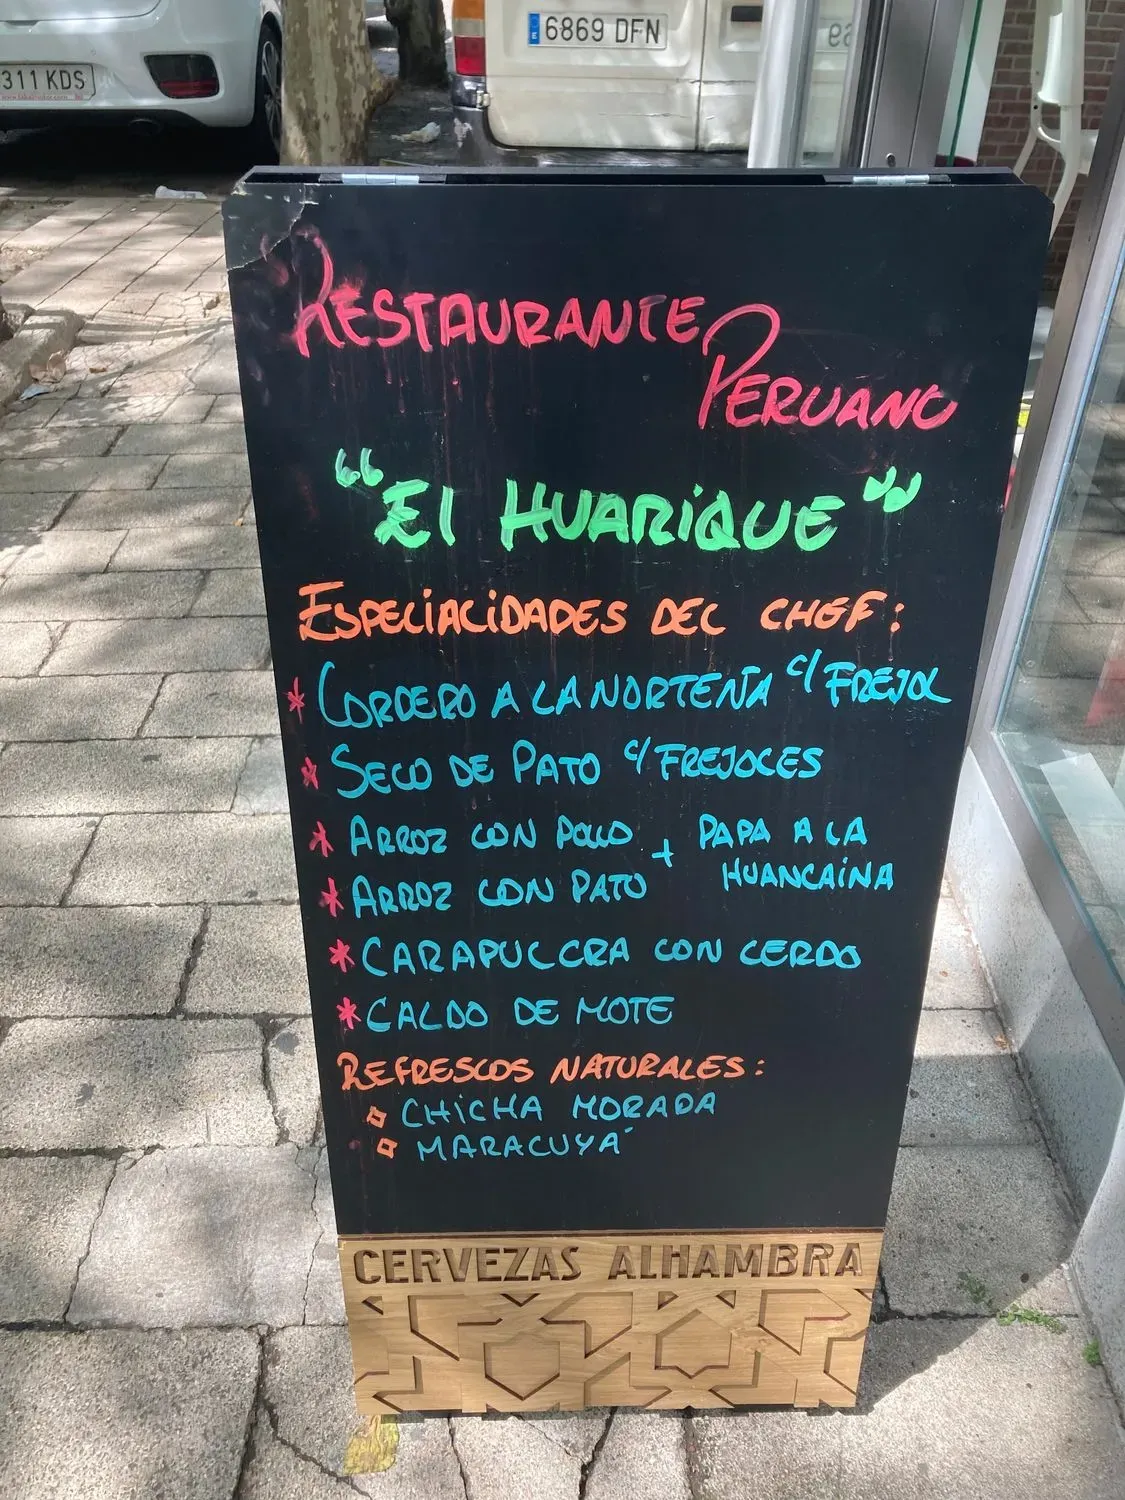 6869 DFN
311 KDS
RESTAURANTE
PERUANO
"El HUARIQUE"
ESPECIALIDADES DEL CHEF:
* CORDERO A LA NORTEÑA c/ FREJOL
* SECO DE PATO c/ FREJOLES
* ARROZ CON POLLO + PAPA A LA
HUANCAINA
* ARROZ CON PATO
* CARAPULCRA CON CERDO
* CALDO DE MOTE
REFRESCOS NATURALES:
CHICHA MORADA
MARACUYÁ
CERVEZAS ALHAMBRA